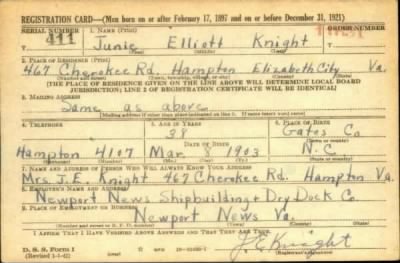 REGISTRATION CARD—(Men born on or after February 17, 1897 and on or before December 31, 1921)
SERIAL NUMBER 1. NAME (Print) ORDER NUMBER
411 Junie Elliott Knight
2. PLACE OF RESIDENCE (Print)
467 Cherokee Rd. Hampton Elizabeth City Va.
[THE PLACE OF RESIDENCE GIVEN ON THE LINE ABOVE WILL DETERMINE LOCAL BOARD
JURISDICTION; LINE 2 OF REGISTRATION CERTIFICATE WILL BE IDENTICAL]
3. MAILING ADDRESS
Same as above
[Mailing address if other than place indicated on line 2. If same insert word same]
4. TELEPHONE 5. AGE IN YEARS 6. PLACE OF BIRTH
38 Gates Co
DATE OF BIRTH
Hampton 4107 Mar 8 1903 N.C
7. NAME AND ADDRESS OF PERSON WHO WILL ALWAYS KNOW YOUR ADDRESS
Mrs. J. E. Knight 467 Cherokee Rd. Hampton Va
8. EMPLOYER'S NAME AND ADDRESS
Newport News Shipbuilding + Dry Dock Co.
9. PLACE OF EMPLOYMENT OR BUSINESS
Newport News Va.
I AFFIRM THAT I HAVE VERIFIED ABOVE ANSWERS AND THAT THEY ARE TRUE.
D. S. S. Form 1
(Revised 1-1-42)
J. E. Knight
(Registrant's signature)